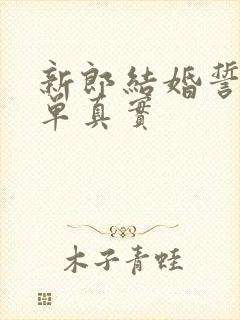 新郎結婚誓
單真實
木子青蛙